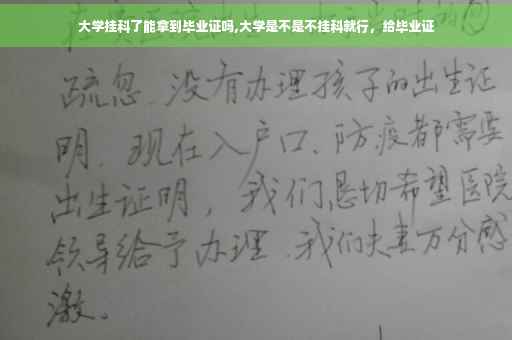 大学挂科了能拿到毕业证吗,大学是不是不挂科就行，给毕业证
疏忽、没有办理孩子的出生证
明、现在入户口、防疫都需要
出生证明，我们恳切希望医院
领导给予办理、我们夫妻万分感
激。